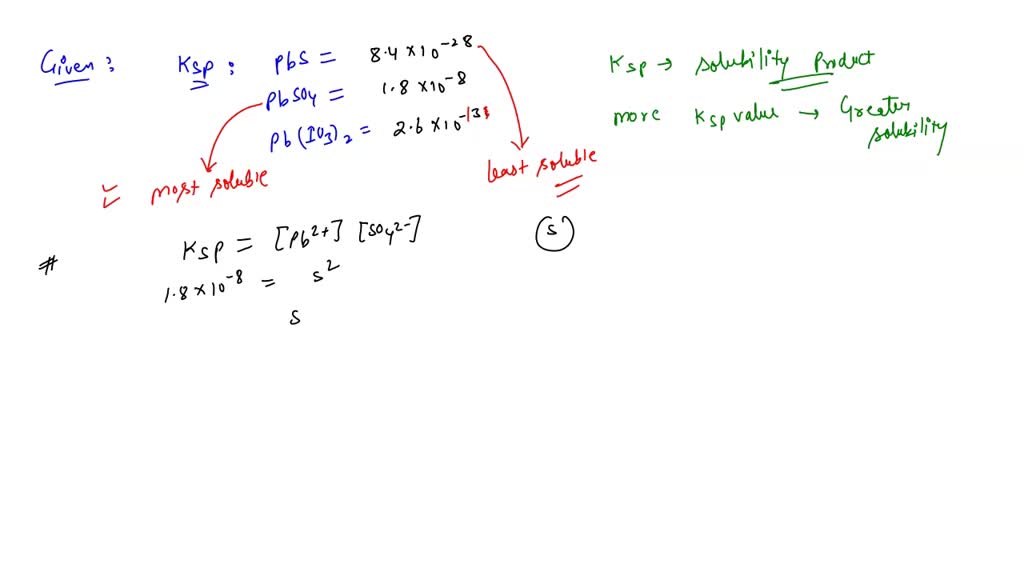 Given: Ksp: PbS = 8.4×10⁻²⁸
PbSO₄ = 1.8×10⁻⁸
Pb(IO₃)₂ = 2.6×10⁻¹³
most soluble
least soluble
Ksp → solubility Product
more Ksp value → Greater
solubility
# Ksp = [Pb²⁺] [SO₄²⁻]
1.8×10⁻⁸ = s²
s
s